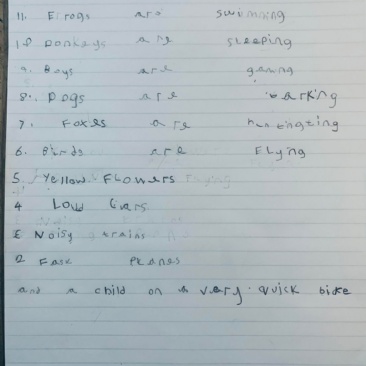 11. Frogs are swimming
10 Donkeys are sleeping
9. Boys are
8. Dogs are barking
7. Foxes are
6. Birds are Flying
5. Yellow Flowers
4 Loud Cars
3 Noisy trains
2 Fast Planes
and a child on a very quick bike